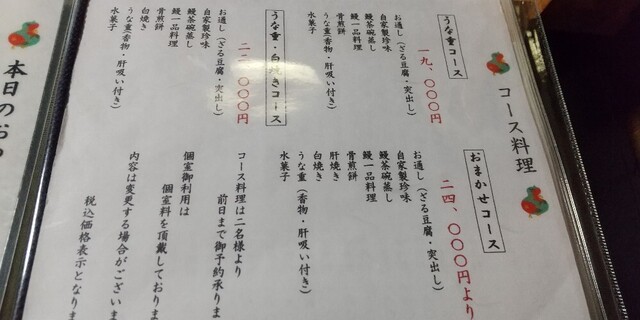 コース料理
うな重コース
一九、〇〇〇円
お通し（ざる豆腐・突出し）
自家製珍味
鰻茶碗蒸し
鰻一品料理
骨煎餅
うな重（香物・肝吸い付き）
水菓子
うな重・白焼きコース
二二、〇〇〇円
お通し（ざる豆腐・突出し）
自家製珍味
鰻茶碗蒸し
鰻一品料理
骨煎餅
白焼き
うな重（香物・肝吸い付き）
水菓子
おまかせコース
二四、〇〇〇円より
お通し（ざる豆腐・突出し）
自家製珍味
鰻茶碗蒸し
鰻一品料理
骨煎餅
肝焼き
白焼き
うな重（香物・肝吸い付き）
水菓子
コース料理は二名様より
前日まで御予約承りま
個室御利用は
個室料を頂戴しておりま
内容は変更する場合がございま
税込価格表示となりま
本日のお